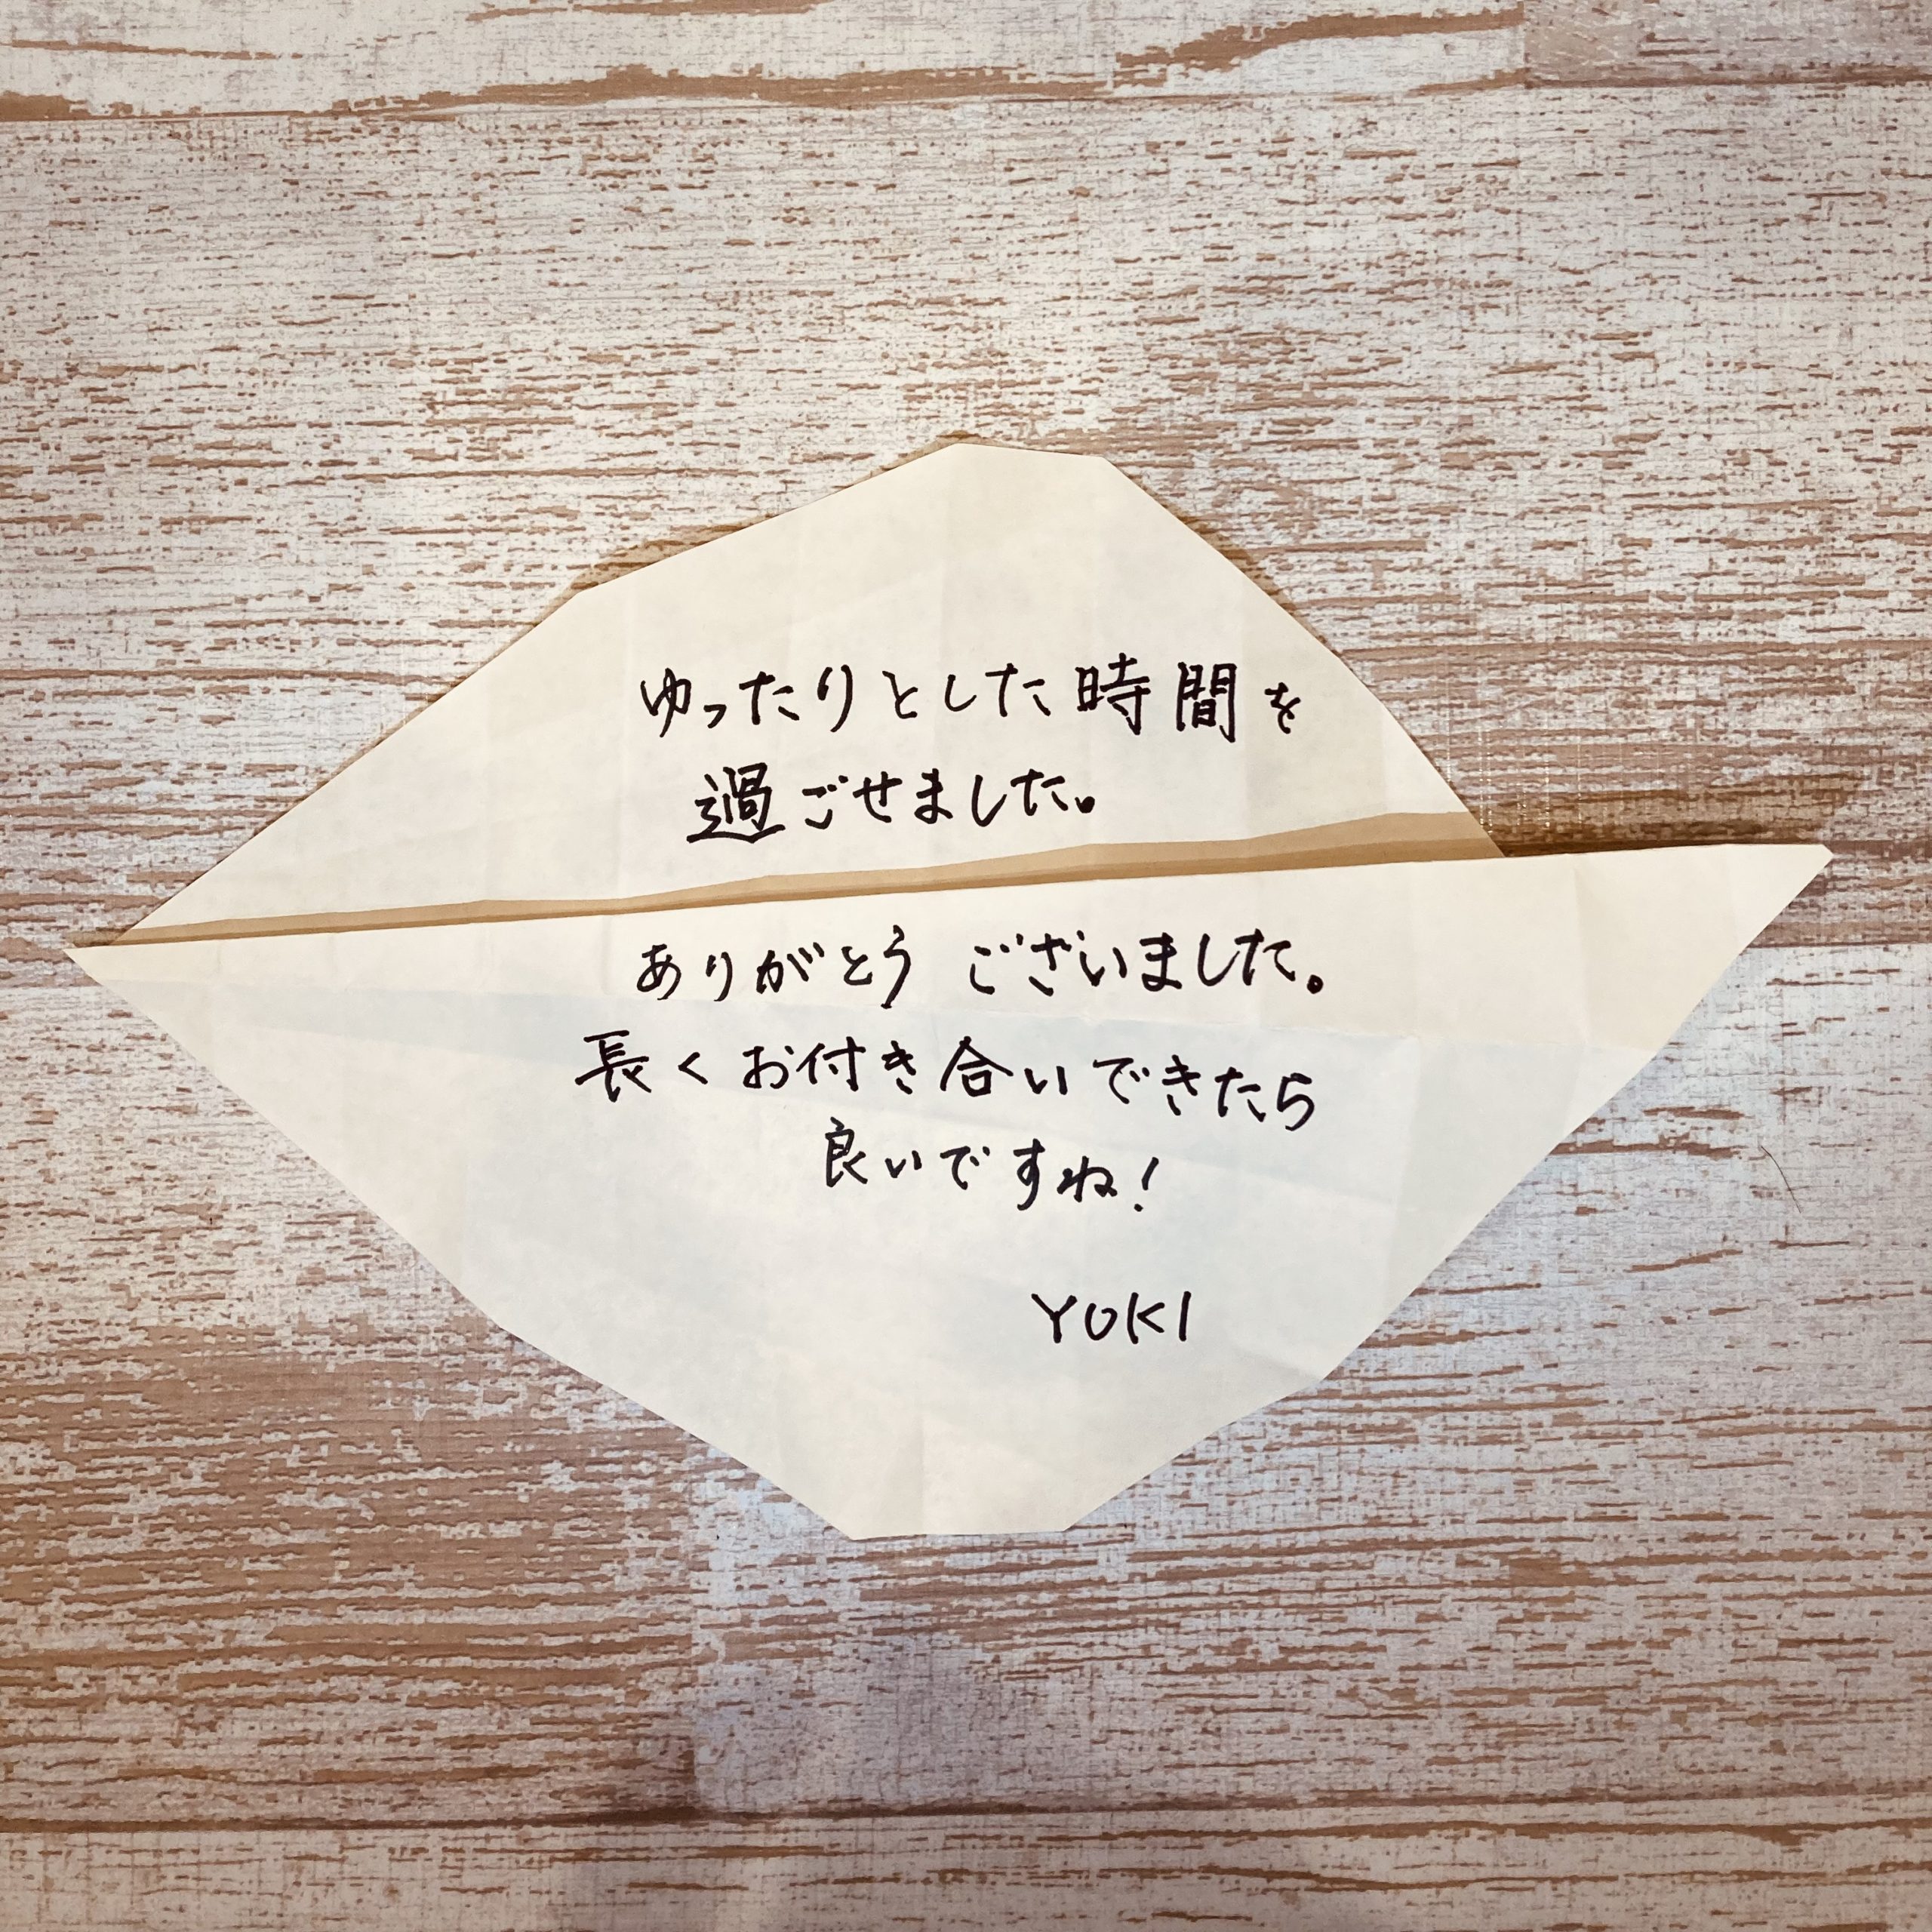 ゆったりとした時間を
過ごせました。
ありがとう ございました。
長くお付き合いできたら
良いですね!
YUKI